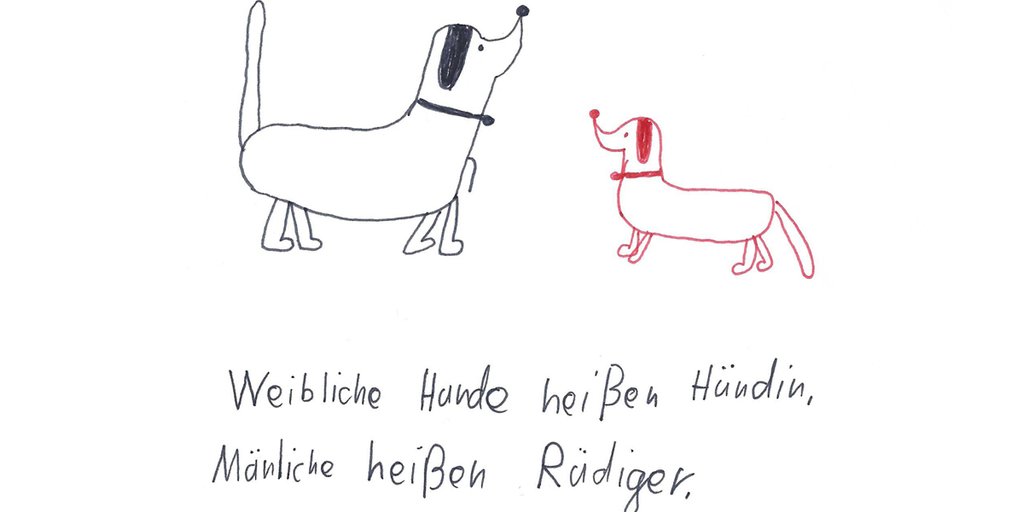 Weibliche Hunde heißen Hündin,
Mänliche heißen Rüdiger.